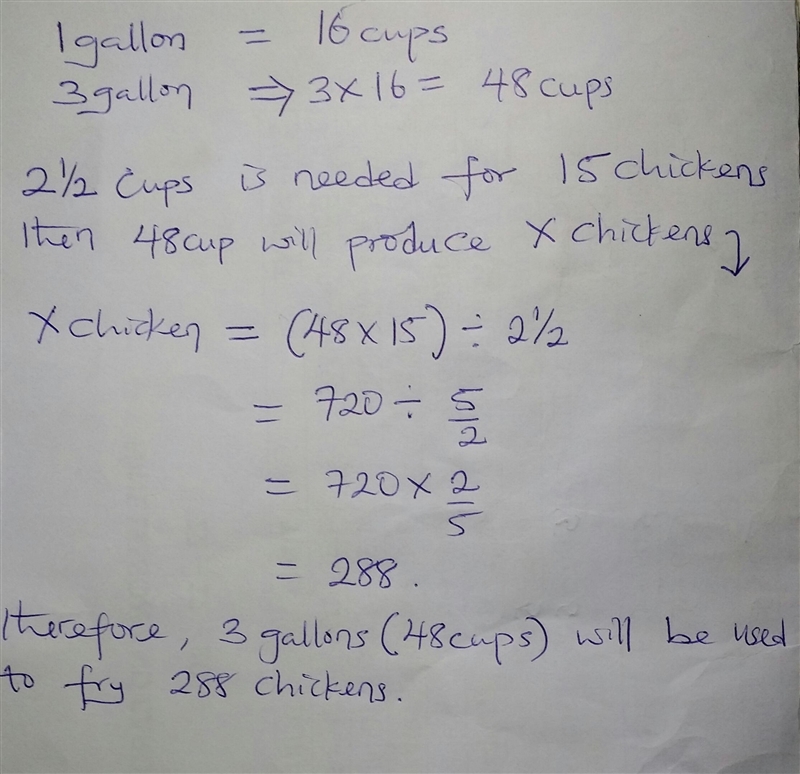 1gallon = 16cups
3gallon ⇒ 3×16 = 48cups
2½ Cups is needed for 15chickens
then 48cup will produce X chickens ↓
X chicken = (48×15) ÷ 2½
= 720 ÷ 5/2
= 720 × 2/5
= 288.
therefore, 3 gallons (48cups) will be used
to fry 288 chickens.